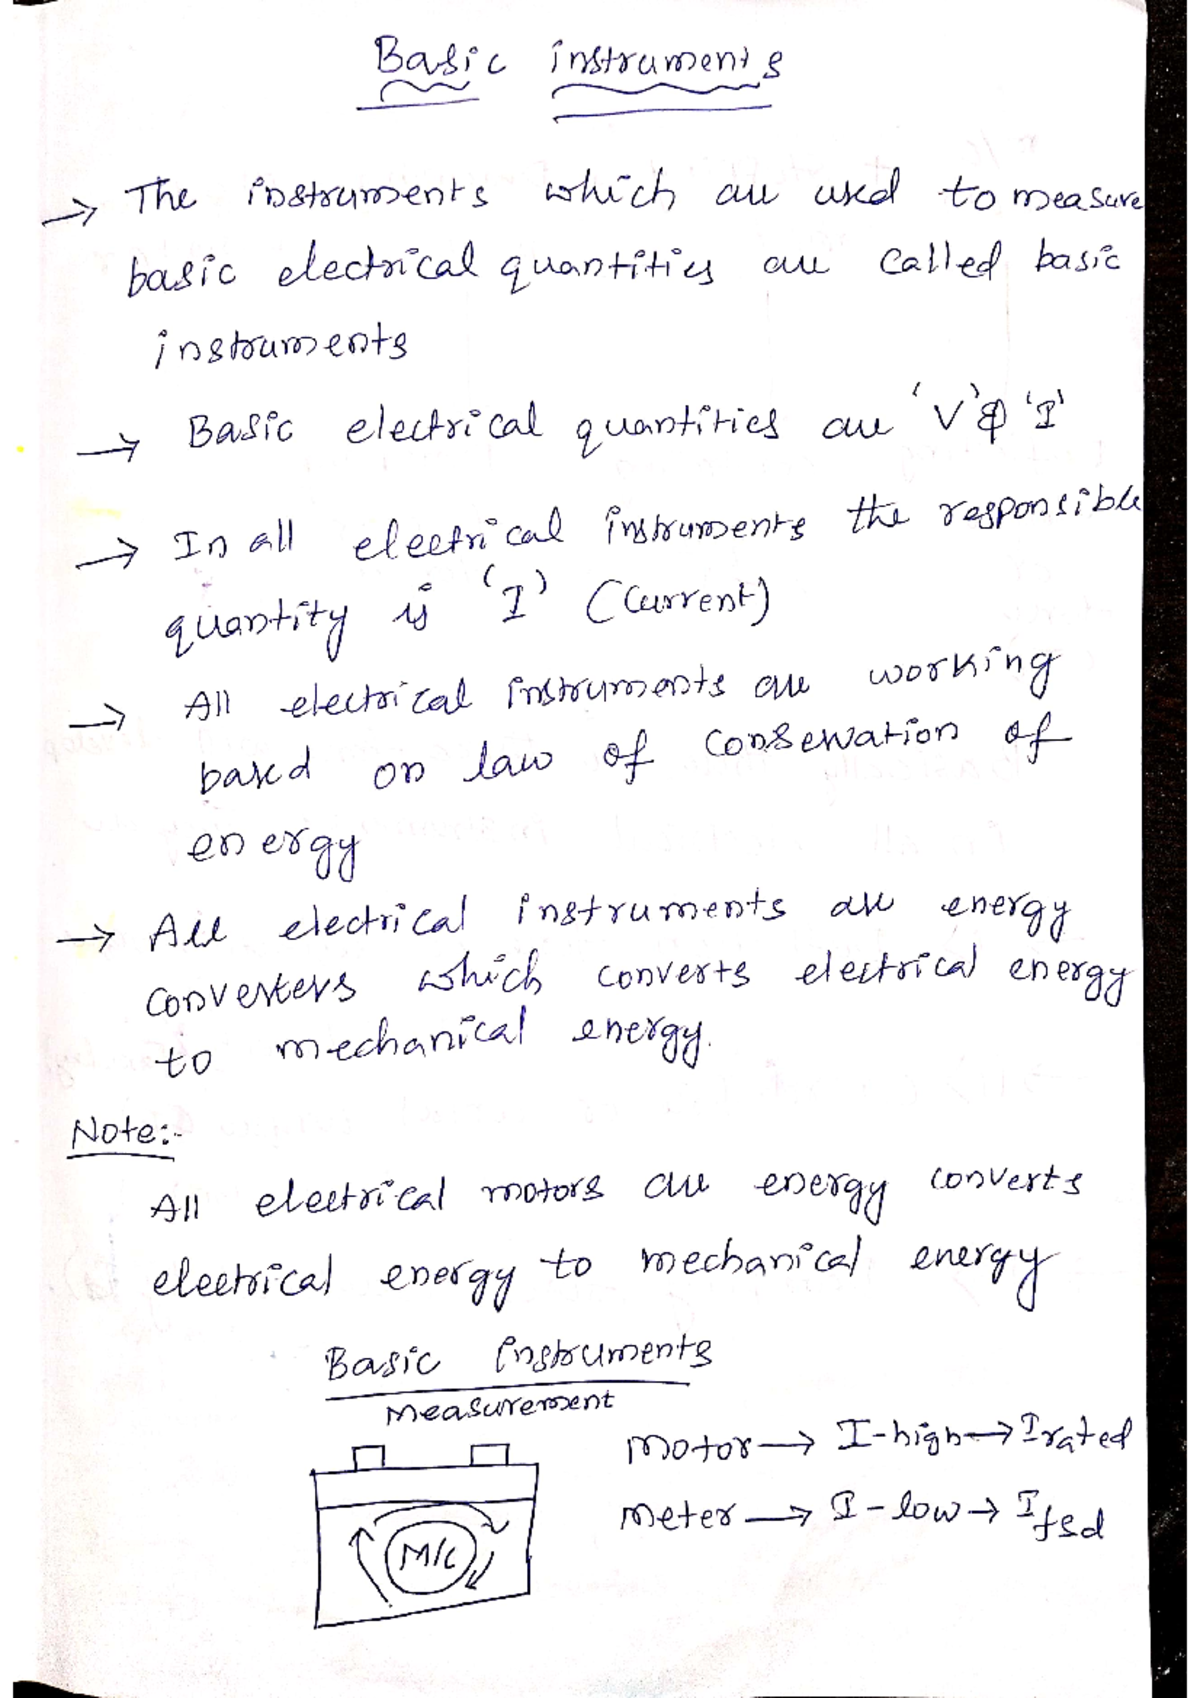 Basic instruments
→ The instruments which are used to measure
basic electrical quantities are called basic
instruments
→ Basic electrical quantities are 'V' & 'I'
→ In all electrical instruments the responsible
quantity is 'I' (Current)
→ All electrical instruments are working
based on law of conservation of
energy
→ All electrical instruments are energy
converters which converts electrical energy
to mechanical energy.
Note:-
All electrical motors are energy converts
electrical energy to mechanical energy
Basic instruments
measurement
motor → I-high → I rated
meter → I-low → I fsd
M/C